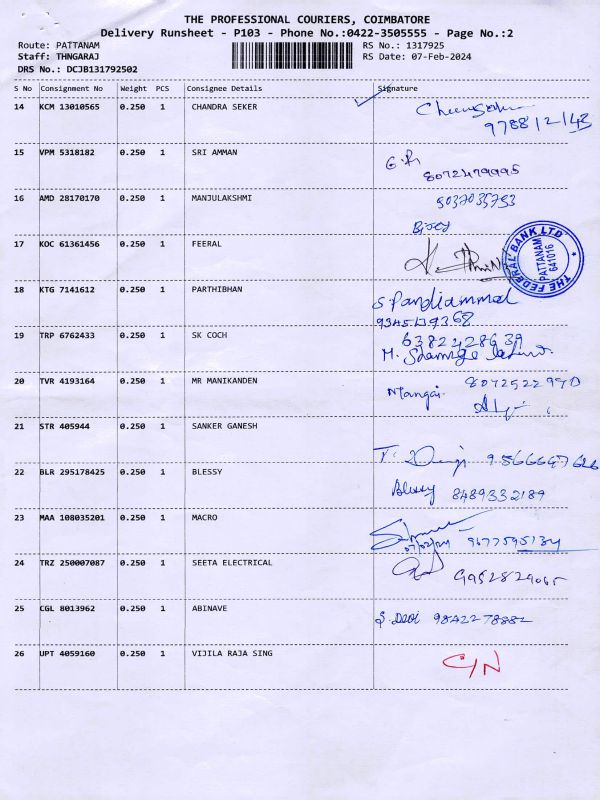 THE PROFESSIONAL COURIERS, COIMBATORE
Delivery Runsheet - P103 - Phone No.:0422-3505555 - Page No.:2
Route: PATTANAM
RS No.: 1317925
Staff: THNGARAJ
RS Date: 07-Feb-2024
DRS No.: DCJB131792502
S No Consignment No Weight PCS Consignee Details Signature
14 KCM 13010565 0.250 1 CHANDRA SEKER
15 VPM 5318182 0.250 1 SRI AMMAN
8072479995
16 AMD 28170170 0.250 1 MANJULAKSHMI
17 KOC 61361456 0.250 1 FEERAL
THE FEDERAL BANK LTD
PATTANAM
641016
18 KTG 7141612 0.250 1 PARTHIBHAN
S. Pandiammal
19 TRP 6762433 0.250 1 SK COCH
6382428639
20 TVR 4193164 0.250 1 MR MANIKANDEN
Mangai.
21 STR 405944 0.250 1 SANKER GANESH
22 BLR 295178425 0.250 1 BLESSY
Blessy 8489332189
23 MAA 108035201 0.250 1 MACRO
07/02/24 9677595134
24 TRZ 250007087 0.250 1 SEETA ELECTRICAL
25 CGL 8013962 0.250 1 ABINAVE
S. Devi 9842278882
26 UPT 4059160 0.250 1 VIJILA RAJA SING
C/N